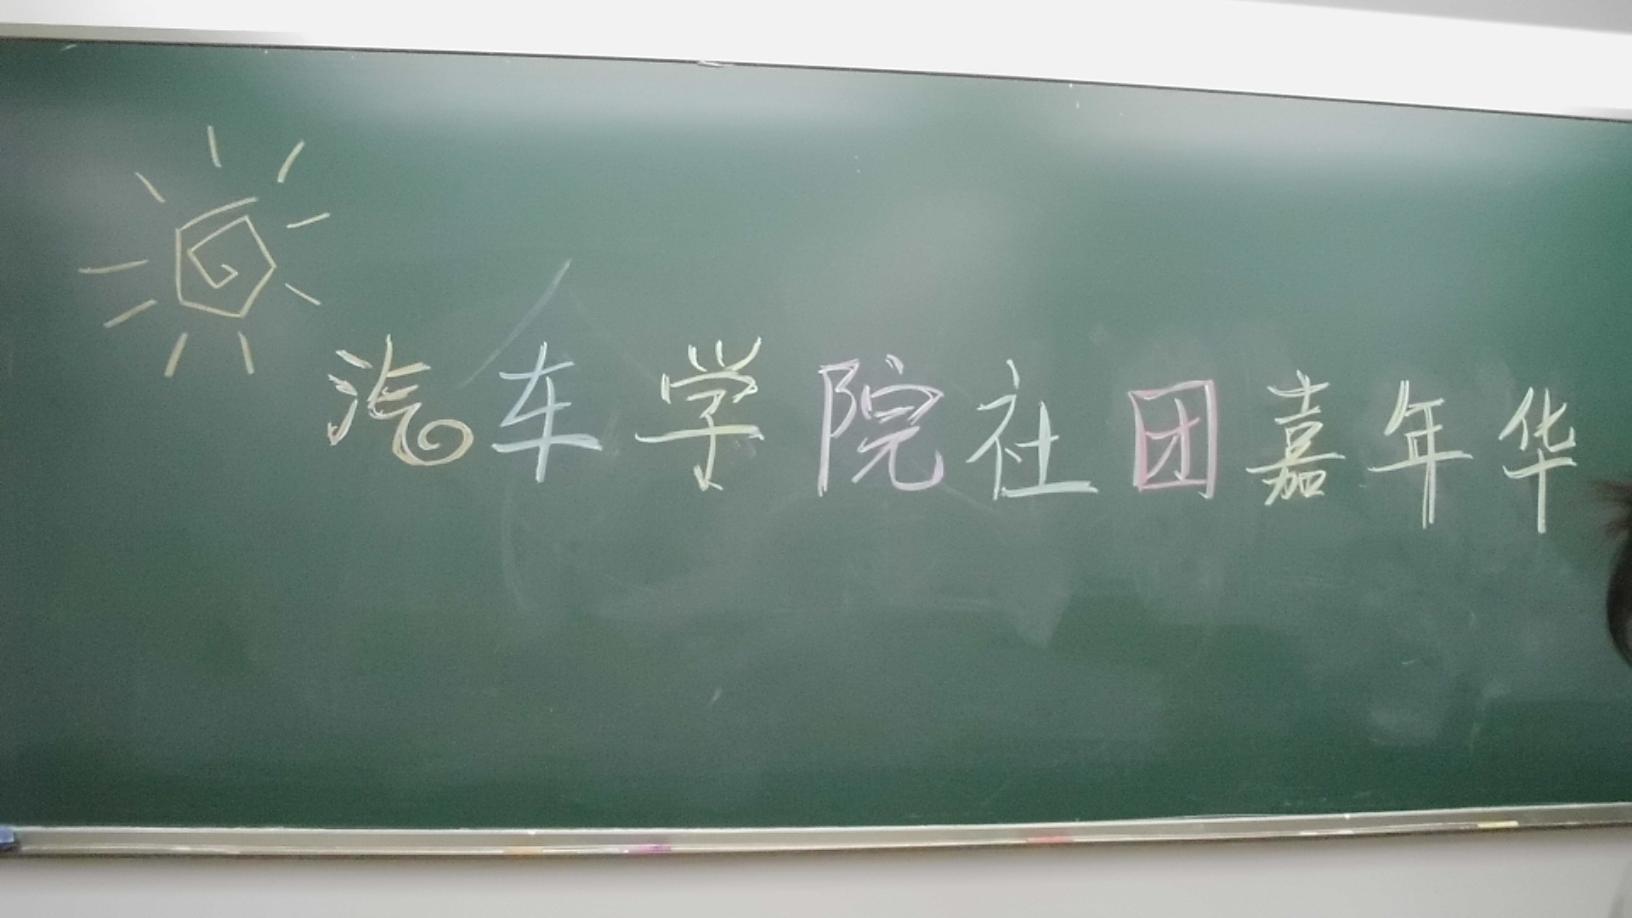 汽车学院社团嘉年华